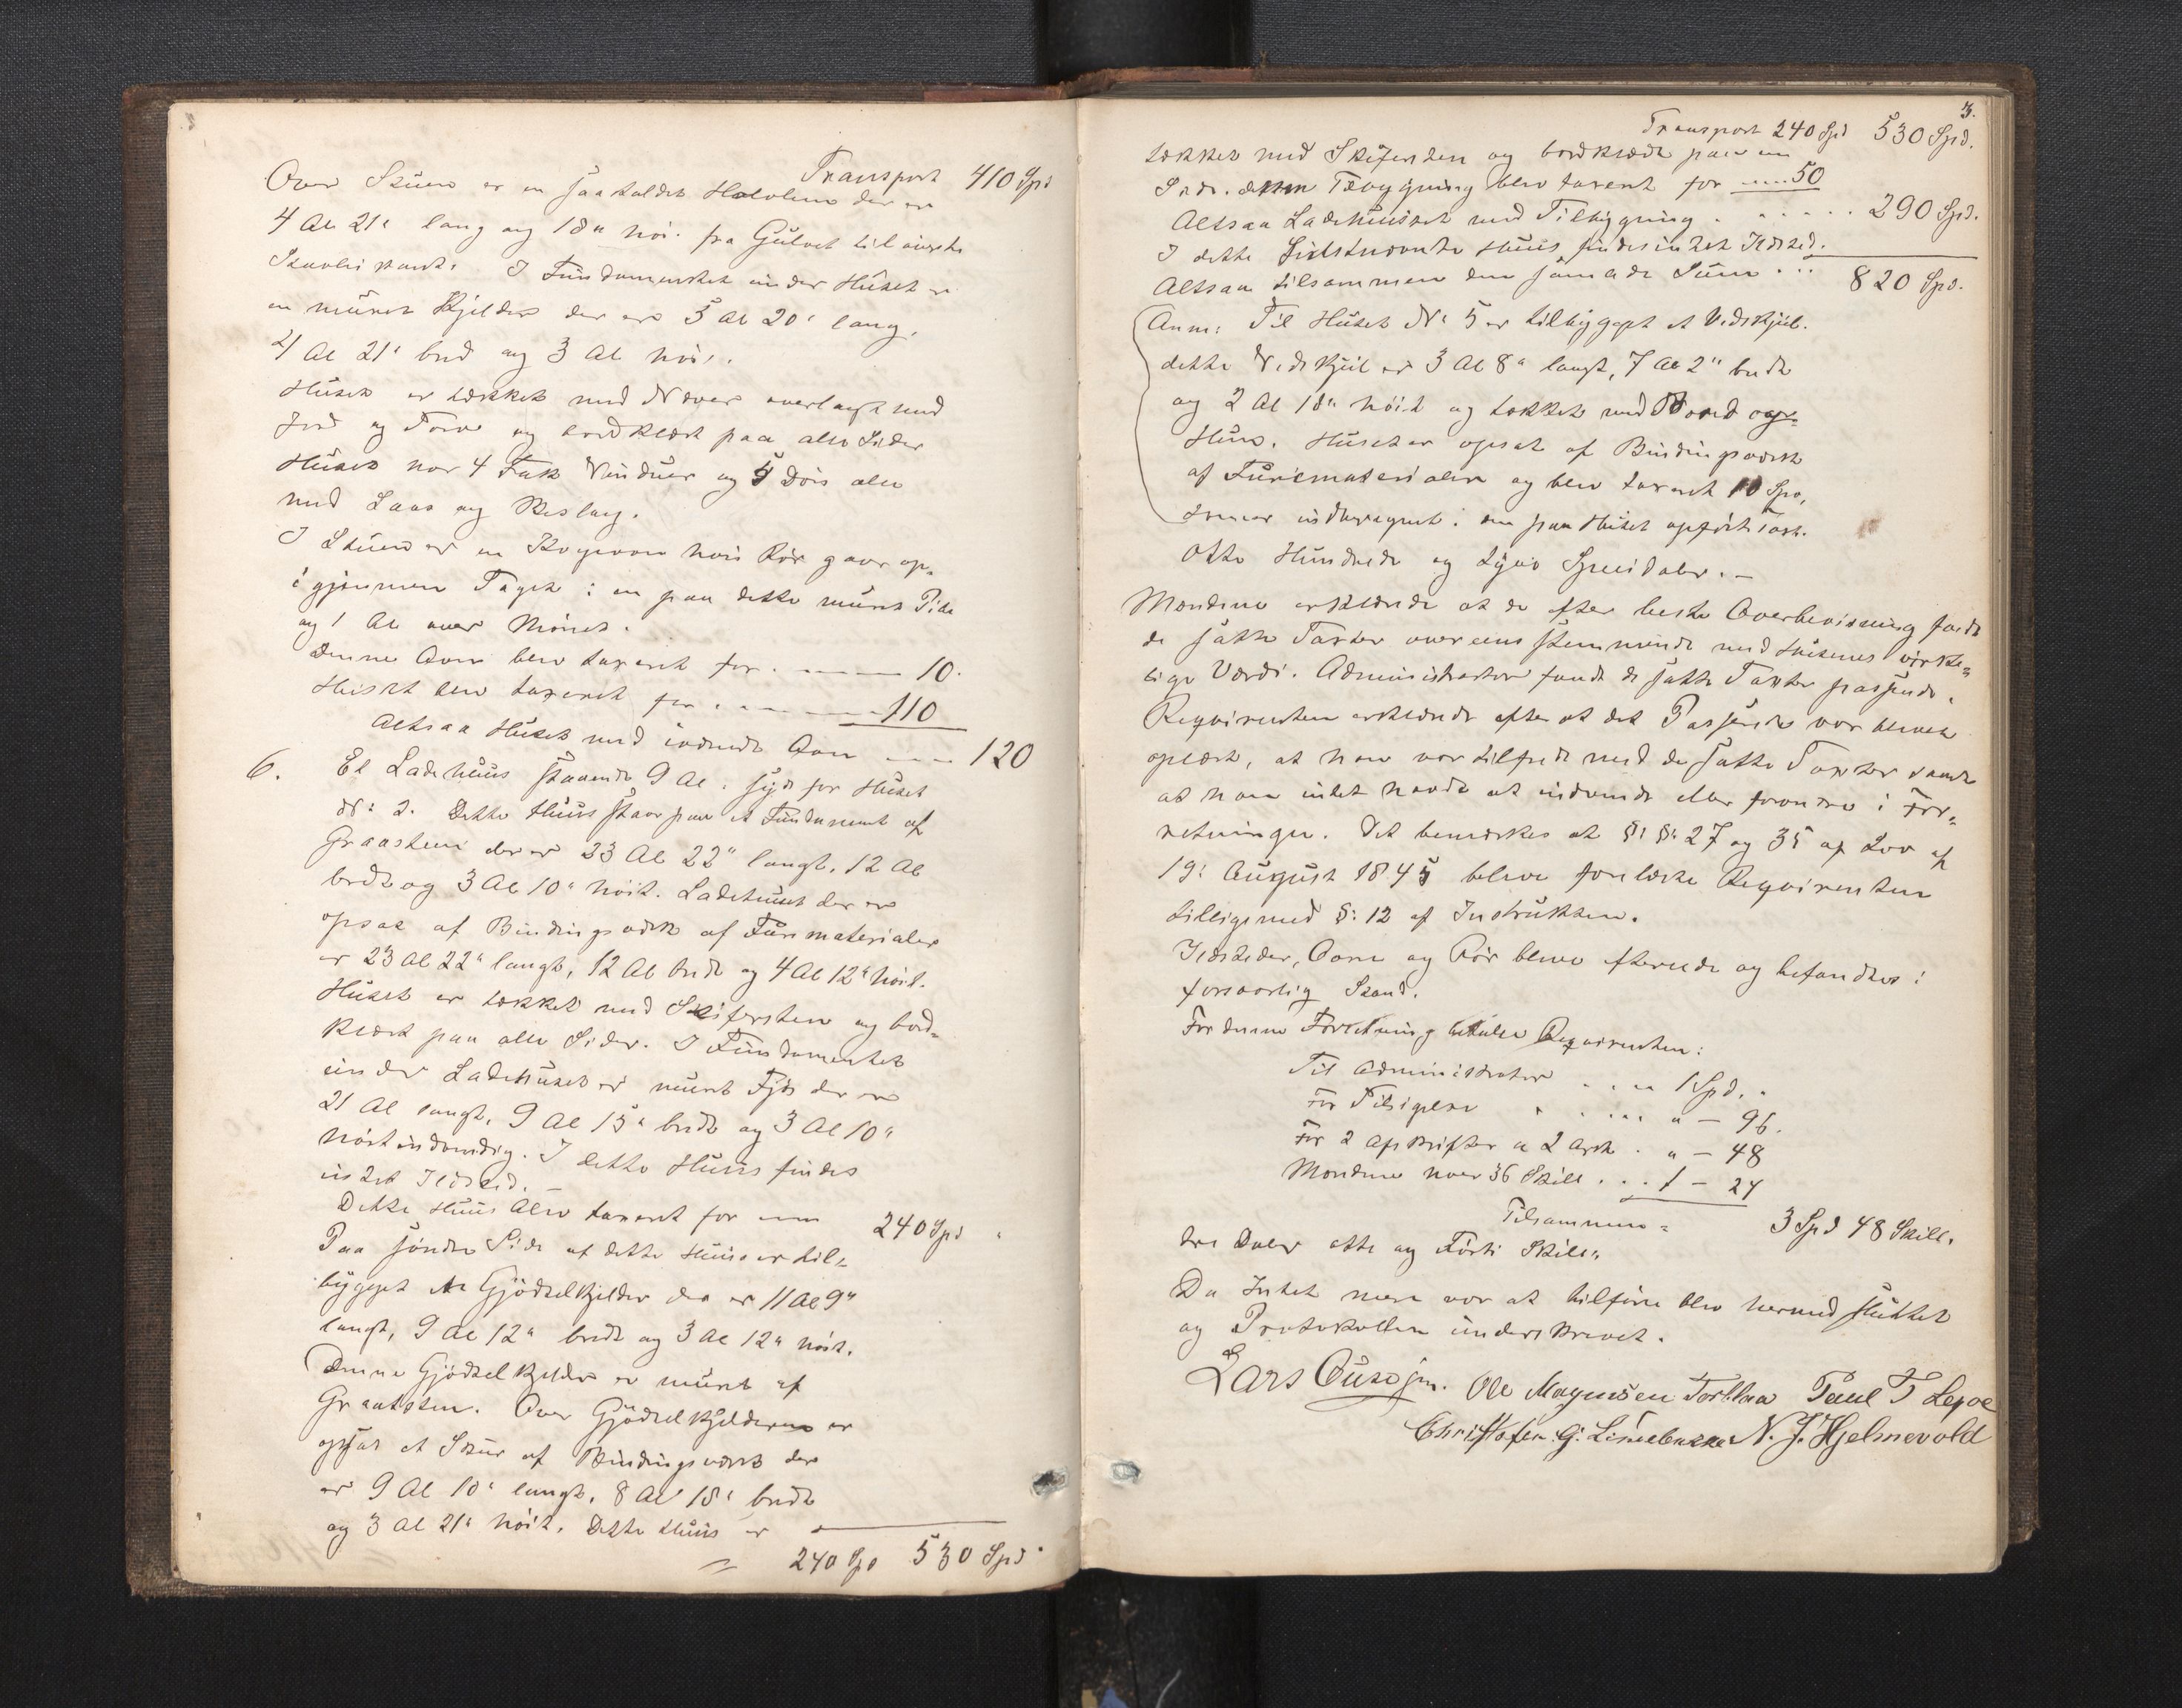 Transport 410 Spd
Over Stuen er en saakaldet Halvlem der er
4 Al 21" lang og 18" höi fra Gulvet til överste
I Fundamentet under Huset er
en muret Kjelder der er 5 Al 20" lang,
4 Al 21" bred og 3 Al höi.
Huset er tækket med Næver overlagt med
Jord og Torv og bordklædt paa alle Sider
Huset har 4 Fak Vinduer og 5 Döre alle
med Laas og Beslag.
I Stuen er en Kogeovn hvis Rör gaar op
igjennem Taget i en paa dette muret Pibe
og 1 Al over Mönet.
Denne Ovn blev taxeret for . — 10.
Huset blev taxeret for . . — 110
Altsaa Huset med iværende Ovn — 120
6. Et Ladehuus staaende 9 Al. syd for Huset
N: 2. Dette Huus staar paa et Fundament af
Graasteen der er 23 Al 22" langt, 12 Al
bredt og 3 Al 10" höit. Ladehuset der er
opsat af Bindingsværk af Furematerialer
er 23 Al 22" langt, 12 Al bredt og 4 Al 12" höit.
Huset er tækket med Skifersteen og bord-
klædt paa alle Sider. I Fundamentet
under Ladehuset er muret Fjös der er
21 Al langt, 9 Al 15" bredt og 3 Al 10"
höit indvendig. I dette Huus findes
intet Ildsted. —
Dette Huus blev taxeret for — 240 Spd
Paa söndre Side af dette Huus er til-
bygget en Gjödselkjelder der er 11 Al 9"
langt, 9 Al 12" bredt og 3 Al 12" höit.
Denne Gjödselkjelder er muret af
Graasteen. Over Gjödselkjelderen er
opsat et Skur af Bindingsværk der
er 9 Al 10" langt, 8 Al 18" bredt
og 3 Al 21" höit. Dette Huus er
240 Spd 530 Spd
3.
Transport 240 Spd 530 Spd.
tækket med Skifersteen og bordklædt paa en
Side. denne Tilbygning blev taxeret for — 50
Altsaa Ladehuuset med Tilbygning . . . . . . 290 Spd.
I dette Sidstnævnte Huus findes intet Ildsted.
Altsaa tilsammen den samlede Sum . . . 820 Spd.
Anm: Til Huset N: 5 er tilbygget et Vedskjul.
dette Vedskjul er 3 Al 8" langt, 7 Al 2" bredt
og 2 Al 18" höit og tækket med Bord og
Huset er opsat af Bindingsværk
af Furematerialer og blev taxeret 10 Spd,
som er indberegnet i den paa Huset opförte Taxt.
Otte Hundrede og tyve Speciedaler. —
Mændene erklærede at de efter bedste Overbeviisning fandt
de satte Taxter overeensstemmende med Husenes virke-
lige Værdi. Administrator fandt de satte Taxter passende.
Reqvirenten erklærede efter at det Passerede var bleven
oplæst, at han var tilfreds med de satte Taxter samt
at han intet havde at indvende eller forandre i For-
retningen. Det bemærkes at §: §: 27 og 35 af Lov af
19: August 1845 bleve forelæste Reqvirenten
tilligemed §: 12 af Instruksen.
Ildsteder, Ovne og Rör bleve efterseede og befandtes i
forsvarlig Stand.
For denne Forretning betaler Reqvirenten:
Til Administrator . . . 1 Spd. "
For Tilsigelse . . . . . " — 96.
For 2 Afskrifter a 2 Ark . " — 48
Mændene hver 36 Skill . . . 1 — 24
Tilsammen = 3 Spd 48 Skill.
tre Daler otte og Förti Skill.
Da Intet mere var at tilföre blev hermed sluttet
og Protokollen underskrevet.
Lars Ouse jm. Ole Magnusen Paul T Lepoe
Christofer G: N. J. Hjelmevold